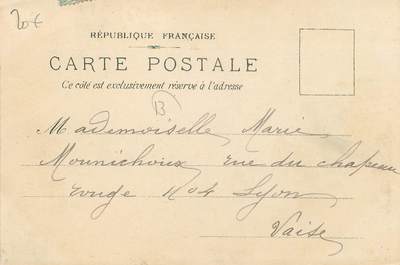 20€
RÉPUBLIQUE FRANÇAISE
CARTE POSTALE
Ce côté est exclusivement réservé à l'adresse
B
Mademoiselle Marie
rue du chapeau
rouge No 4 Lyon
Vaise